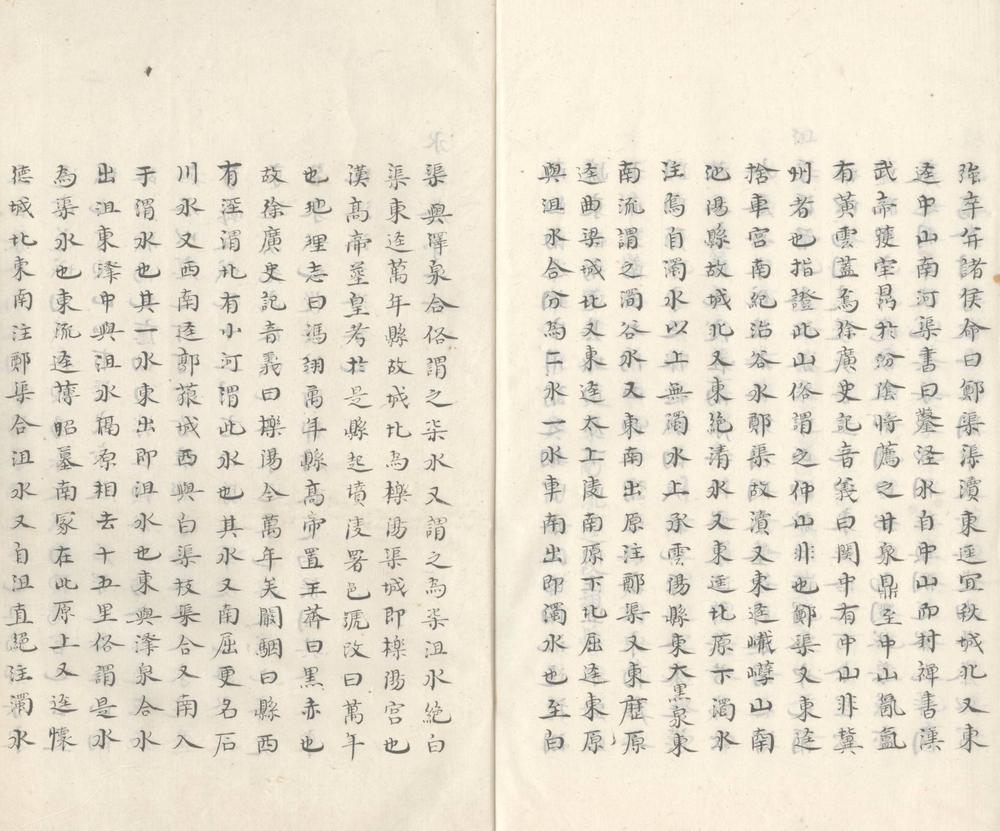 強辛弁諸侯命曰鄭渠渠瀆東逕宜秋城北又東
逕中山南河渠書曰鑿涇水自中山而封禪書漢
武帝獲寶鼎於汾陰將薦之甘泉鼎至中山氤氳
有黃雲蓋焉徐廣史記音義曰関中有中山非冀
州者也指證此山俗謂之仲山非也鄭渠又東逕
捨車宮南絶治谷水鄭渠故瀆又東逕嶻嶭山南
池陽縣故城北又東絶清水又東逕北原下濁水
注焉自濁水以上無濁水上承雲陽縣東大黑泉東
南流謂之濁谷水又東南出原注鄭渠又東歷原
逕曲梁城北又東逕太上陵南原下北屈逕東原
與沮水合分為二水一水東南出即濁水也至白
渠與澤泉合俗謂之柒水又謂之為柒沮水絶白
渠東逕萬年縣故城北為櫟陽渠城即櫟陽宮也
漢高帝塟皇考於是縣起墳陵署邑號改曰萬年
也地理志曰馮翊萬年縣高帝置王莽曰黑赤也
故徐廣史記音義曰櫟陽今萬年矣闞駰曰縣西
有涇渭北有小河謂此水也其水又南屈更名石
川水又西南逕郭蒗城西與白渠枝渠合又南入
于渭水也其一水東出即沮水也東與澤泉合水
出沮東澤中與沮水隔原相去十五里俗謂是水
為渠水也東流逕薄昭墓南冢在此原上又逕懷
德城北東南注鄭渠合沮水又自沮直絶注濁水